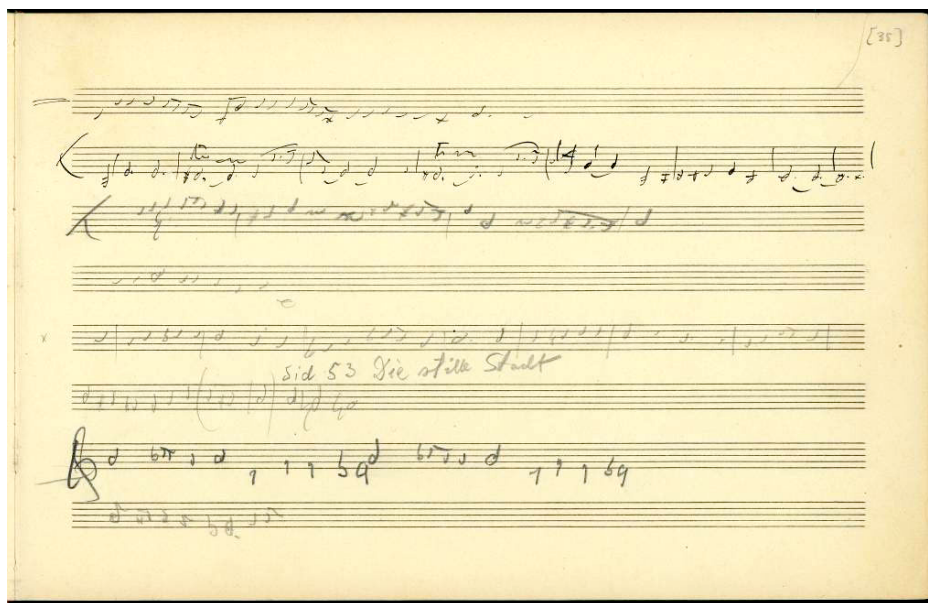 [35]
Sid 53 Die stille Stadt